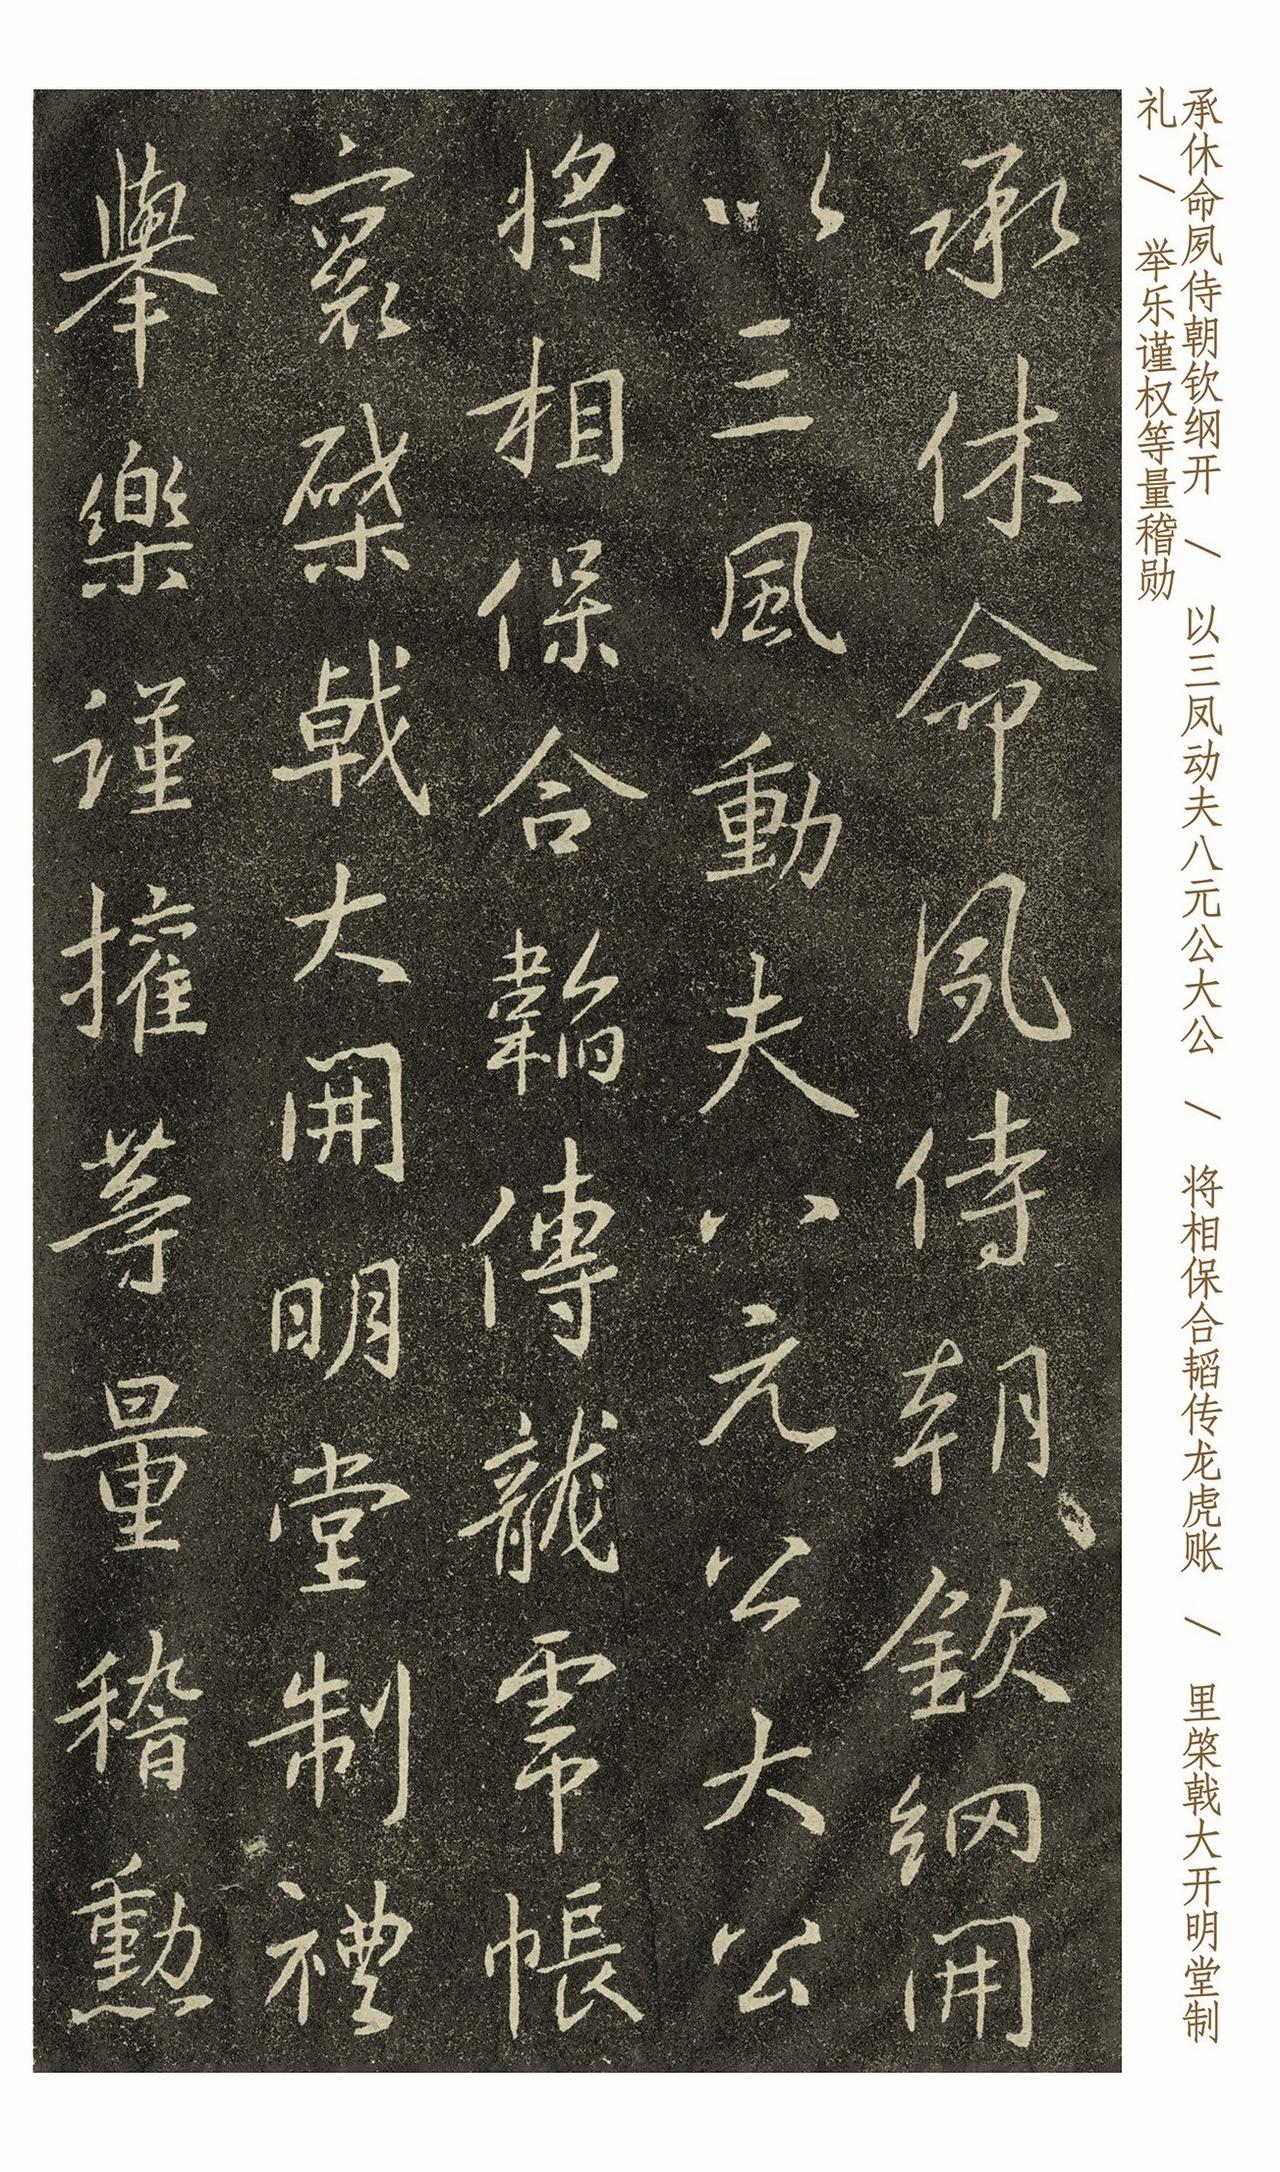 承休命夙侍朝钦纲开 / 以三凤动夫八元公大公 / 将相保合韬传龙虎账 / 里棨戟大开明堂制
礼 / 举乐谨权等量稽勋
承休命夙侍朝欽綱開
以三風動夫八元公大公
將相保合韜傳龍虎帳
裏棨戟大開明堂制禮
舉樂謹權等量稽勳